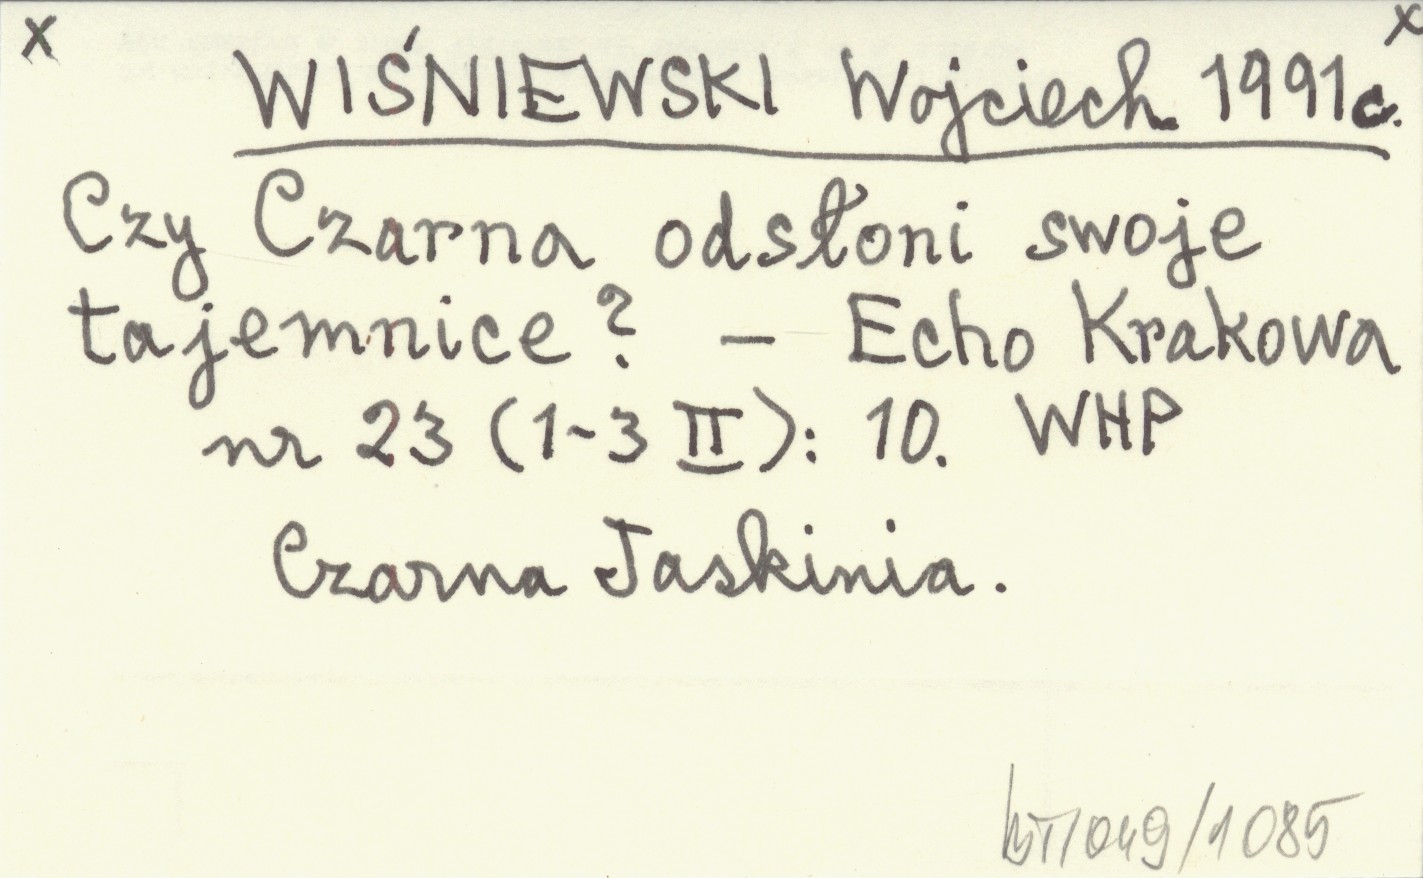 x x
WIŚNIEWSKI Wojciech 1991c.
Czy Czarna odsłoni swoje
tajemnice? – Echo Krakowa
nr 23 (1-3 II): 10. WHP
Czarna Jaskinia.
/049/1085